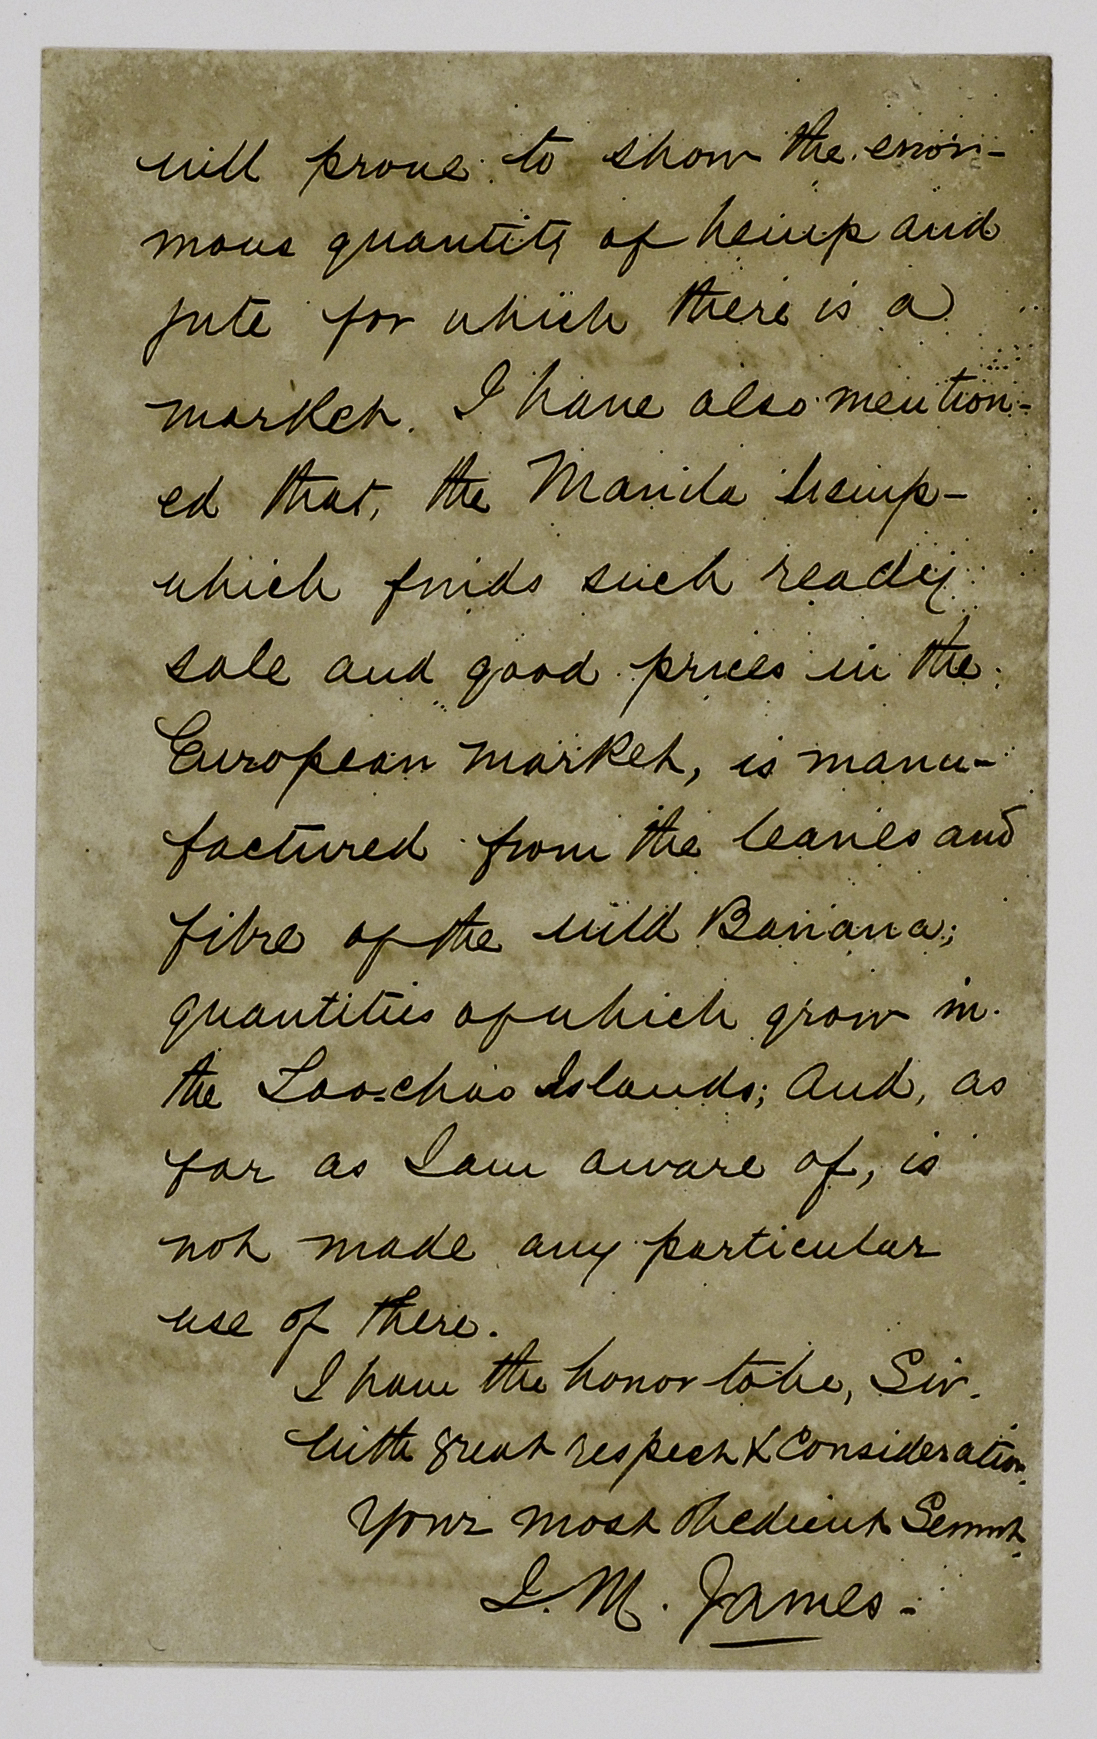 will prove to show the enor-
mous quantity of hemp and
jute for which there is a
market. I have also mention-
ed that, the Manila hemp-
which finds such ready
sale and good prices in the
European market, is manu-
factured from the leaves and
fibre of the wild Banana;
quantities of which grow in
the Loo-choo Islands; and, as
far as I am aware of, is
not made any particular
use of there.
I have the honor to be, Sir.
With great respect & Consideration,
Your most obedient Servnt.
J. M. James-